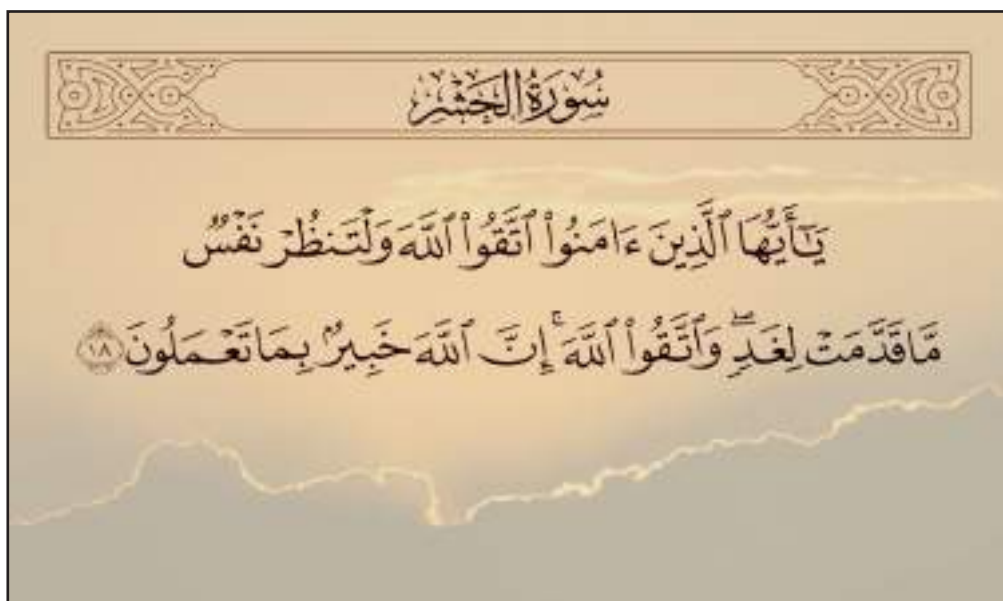 سُورَةُ الحَشْرِ
يَٰٓأَيُّهَا ٱلَّذِينَ ءَامَنُوا۟ ٱتَّقُوا۟ ٱللَّهَ وَلْتَنظُرْ نَفْسٌ
مَّا قَدَّمَتْ لِغَدٍۢ ۖ وَٱتَّقُوا۟ ٱللَّهَ ۚ إِنَّ ٱللَّهَ خَبِيرٌۢ بِمَا تَعْمَلُونَ ١٨